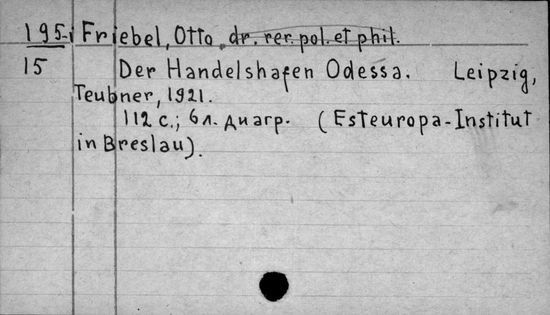 195-i Friebel, Otto, dr. rer. pol. et phil.
15 Der Handelshafen Odessa. Leipzig,
Teubner, 1921.
112 с.; 6 л. диагр. (Esteuropa-Institut
in Breslau).